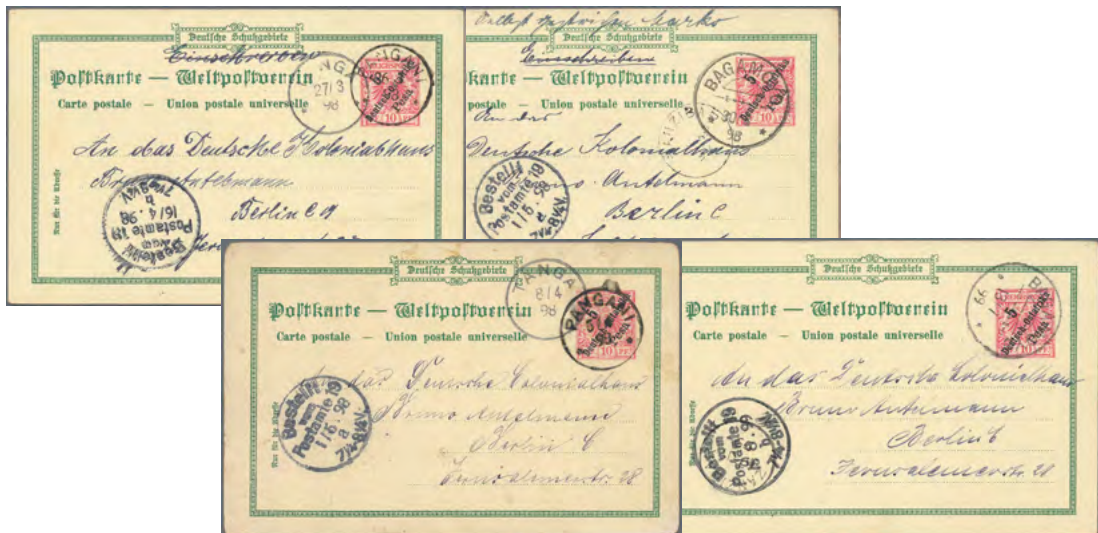 Deutsche Schutzgebiete
Einschreiben
Postkarte — Weltpostverein
Carte postale – Union postale universelle
TANGA
27/3
98
PANGANI
10
An das Deutsche Kolonialhaus
Bruno Antelmann
Berlin C
Nur für die Adresse
Bestellt
vom
Postamte 19
16/4.98
b
Deutsche Schutzgebiete
Einschreiben
karte — Weltpostverein
postale – Union postale universelle
BAGAMOYO
98
10
An das
Deutsche Kolonialhaus
Bruno Antelmann
Berlin C
Bestellt
vom
Postamte 19
1/5.98
a
7¼-8¼V.
Deutsche Schutzgebiete
Postkarte — Weltpostverein
Carte postale – Union postale universelle
TANGA
8/4
98
PANGANI
10
An das Deutsche Colonialhaus
Bruno Antelmann
Berlin C
Jerusalemerstr. 28
Nur für die Adresse
Bestellt
vom
Postamte 19
1/5.98
a
7¼-8¼V.
Deutsche Schutzgebiete
Postkarte — Weltpostverein
Carte postale – Union postale universelle
99
5
10
An das Deutsche Colonialhaus
Bruno Antelmann
Berlin C
Jerusalemerstr. 28
Nur für die Adresse
Bestellt
vom
Postamte 19
b